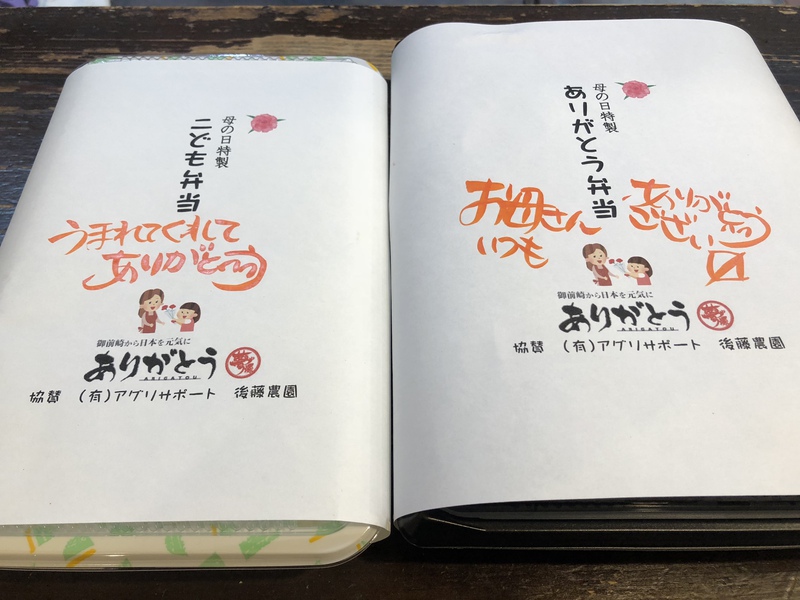 母の日特製
こども弁当
うまれてくれて
ありがとう
御前崎から日本を元気に
ありがとう
ARIGATOU
協賛 (有)アグリサポート 後藤農園
母の日特製
ありがとう弁当
お母さん
いつも
ありがとう
ござい〼
御前崎から日本を元気に
ありがとう
ARIGATOU
協賛 (有)アグリサポート 後藤農園